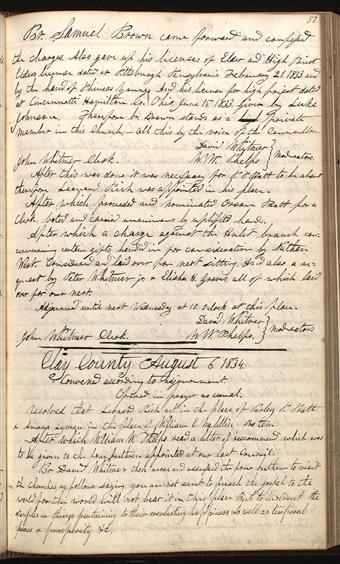 57
Br. Samuel Brown came forward and confessed
the charges. Also gave up his licenses of Elder and High Priest
Elders license dated at Pittsburgh Pensylvania February 21. 1833 and
by the hand of Phineas Young. And his license for high priest dated
at Cincinnatti Hamilton Co. Ohio June 15 1833. Given by Luke
Johnson. Thereupon br. Brown stands as a private
member in this Church all this by the voice of the Councillors
David Whitmer
John Whitmer Clerk. W. W. Phelps. } moderators
After this was done it was necessary for P. P. Pratt to be absent
thereupon Leonard Rich was appointed in his place.
After which proceeded and nominated Orson Pratt for a
Clerk. Voted and carried unanimous by uplifted hand.
After which a charge against the Hulet branch con-
cerning certain gifts handed in for consideration by Nathan
West. Considered and laid over for next sitting. And also a re-
quest by Peter Whitmer jr. & Elisha H. Groves all of which laid
over for our next.
Adjourned until next Wednesday at 10. o.clock at this place.
David Whitmer
John Whitmer Clerk. W. W. Phelps. } moderators
Clay County August 6 1834.
Convened according to adjournment
Opened in prayer as usual.
Resolved that Leonard Rich act in the place of Parley P. Pratt
& in the place of William E. McLellin
After which William W. Phelps read a letter of recommend which was
to be given to the four brethren appointed at our last Council.
Br. David Whitmer then arose and the four brethren to visit
the churches as follows saying, you are not sent to preach the gospel to the
world for the world will not hear it in this place But to instruct the
diciples in things pertaining to their everlasting happiness as well as temporal
peace & prosperity &c.